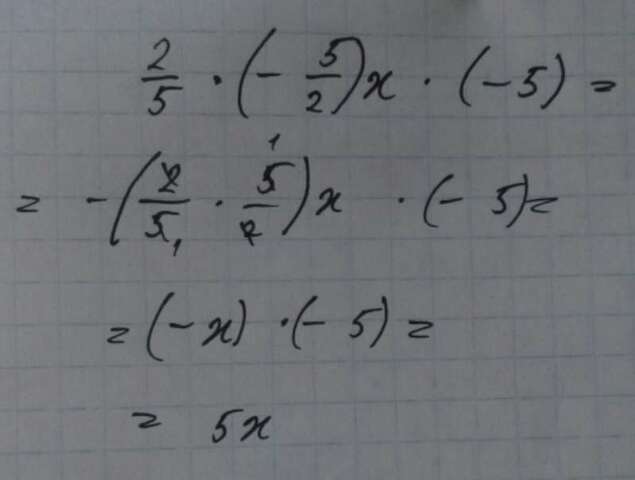 2/5 · (- 5/2)x · (-5) =
= -(2/5 1 · 1 5/2)x · (- 5)=
= (-x) · (- 5) =
= 5x